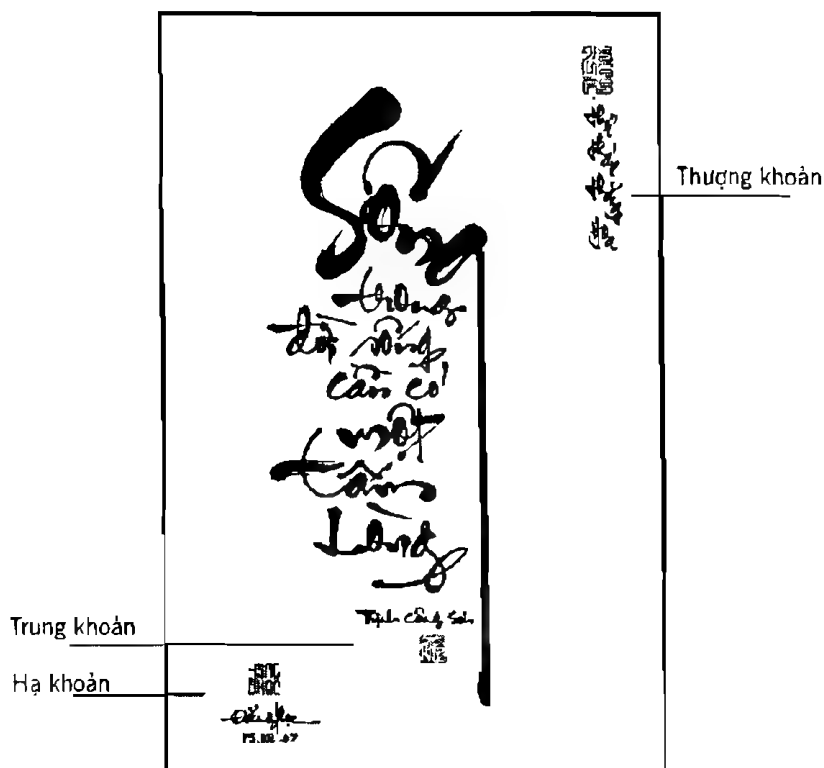 Thượng khoản
Sống
trong
đời sống
cần có
một
tấm
lòng
Trịnh Công Sơn
Trung khoản
Hạ khoản